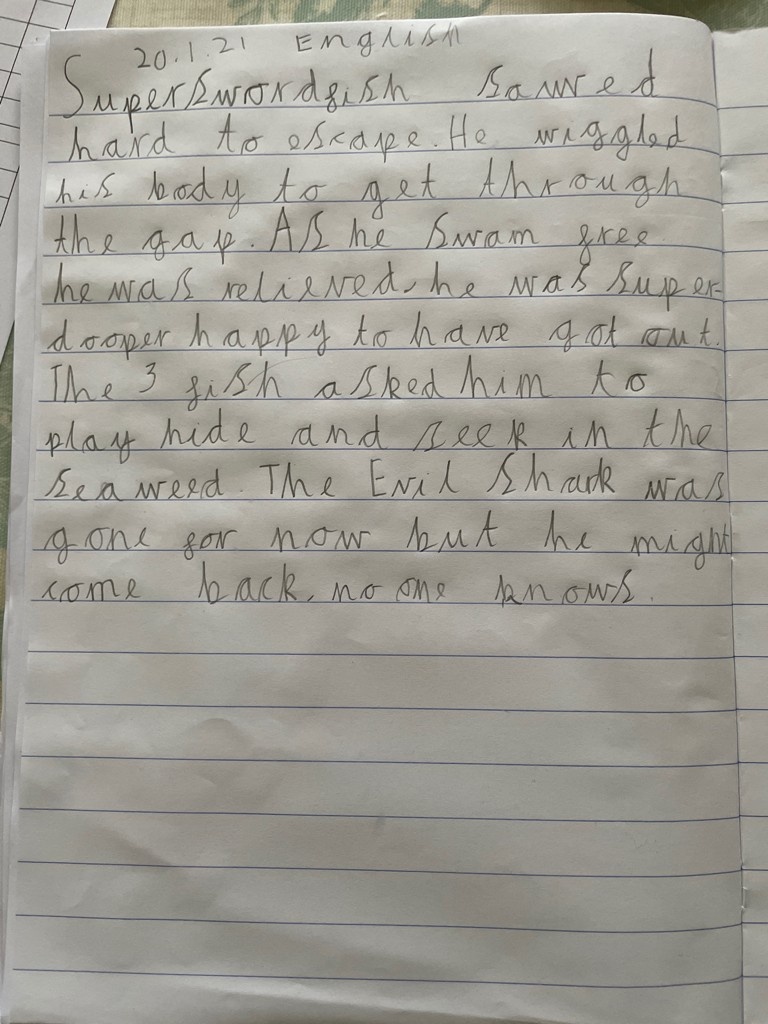 20.1.21 English
Superswordfish sawed
hard to escape. He wiggled
his body to get through
the gap. As he swam free
he was relieved, he was super-
dooper happy to have got out.
The 3 fish asked him to
play hide and seek in the
seaweed. The Evil Shark was
gone for now but he might
come back, no one knows.